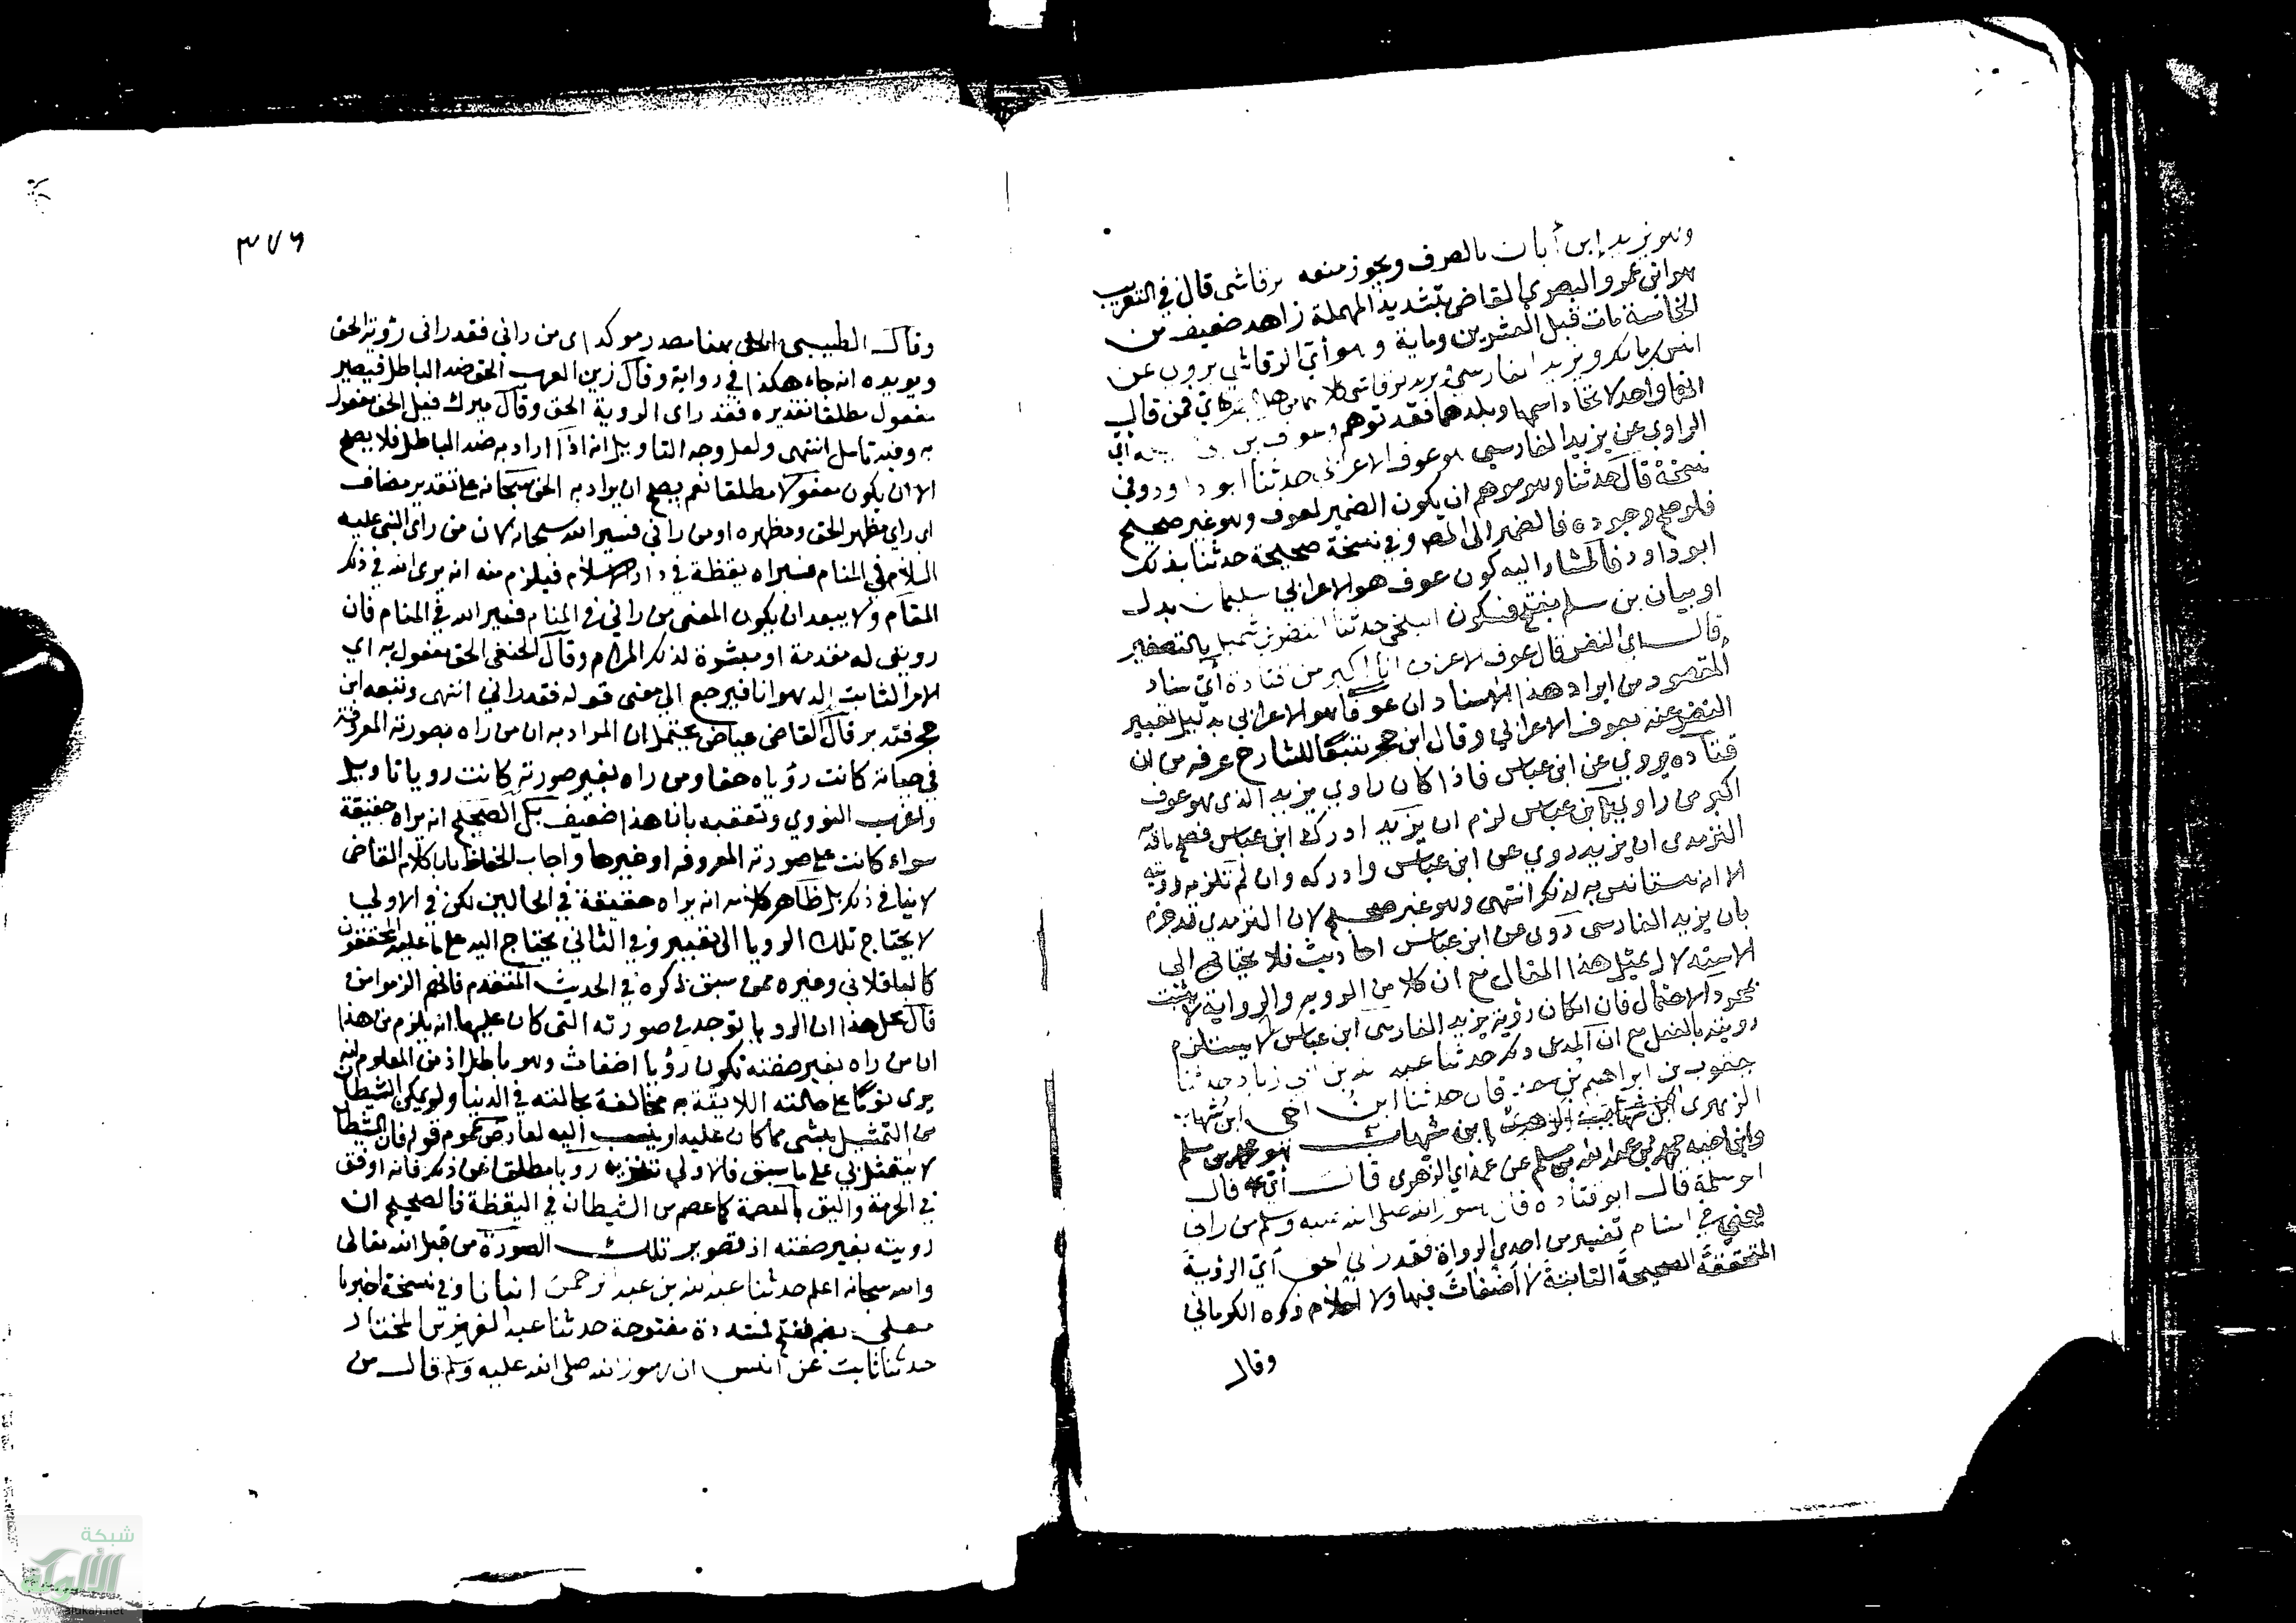 وهو يزيد ابن أبان بالصرف ويجوز منعه الرقاشي قال في التقريب
هو ابو عمرو البصري القاص بتشديد المهملة زاهد ضعيف من
الخامسة مات قبل العشرين وماية وهو أي الرقاشي يروي عن
انس بن مالك ويزيد الفارسي ويزيد الرقاشي كلاهما من اهل البصرة فمن قال
انهما واحد لاتحاد اسمهما وبلدهما فقد توهم وعوف بن أي
الراوي عن يزيد الفارسي هو عوف الاعرابي حدثنا ابو داود وفي
نسخة قال حدثنا وهو موهم ان يكون الضمير لعوف وهو غير صحيح
فلو صح وجوده فالضمير الى المص وفي نسخة صحيحة حدثنا بذلك
ابو داود فالمشار اليه كون عوف هو الاعرابي سليمان بدل
او بيان بن سلم بفتح فسكون البلخي حدثنا النضر بن شميل بالتصغير
قال اي النضر قال عوف الاعرابي انا اكبر من قتادة أي سنا
المقصود من ايراد هذا الاسناد ان عوفا هو الاعرابي بدليل تعبير
النضر عنه بعوف الاعرابي وقال ابن حجر تبعا للشارح عرفه من ان
قتادة يروي عن ابن عباس فاذا كان راوي يزيد الذي هو عوف
اكبر من راوي ابن عباس لزم ان يزيد ادرك ابن عباس فصح ما قاله
الترمذي ان يزيد روي عن ابن عباس وادركه وان لم تلزمه رؤيته
الا انه يستانس به لذلك انتهى وهو غير صحيح لان الترمذي قد جزم
بان يزيد الفارسي روى عن ابن عباس احاديث فلا يحتاج الى
الاستدلال بمثل هذا المقال مع ان كلا من الروية والرواية لا يثبت
بمجرد الاحتمال فان امكان رؤية يزيد الفارسي ابن عباس لا يستلزم
رويته بالفعل مع ان المدعى ذلك حدثنا عبد الله بن ابي زياد حدثنا
يعقوب بن ابراهيم بن سعد قال حدثنا ابن اخي ابن شهاب
الزهري ابن شهاب
وابن اخيه محمد بن عبد الله بن مسلم عن عمه اي الزهري قال أي عمه قال
ابو سلمة قال ابو قتادة قال رسول الله صلى الله عليه وسلم من راني
يعني في المنام تفسير من احدى الرواة فقد راى الحق أي الرؤية
المتحققة الصحيحة الثابتة لا أضغاث فيها ولا احلام ذكره الكرماني
وقال
٣٧٦
وقال الطيبي الحق هنا مصدر موكد اى من رانى فقد رانى رؤية الحق
ويويده انه جاء هكذا في رواية وقال زين العرب الحق ضد الباطل فيصير
مفعول مطلقا تقديره فقد راى الروية الحق وقال ميرك قيل الحق مفعول
به وفيه تامل انتهى ولعل وجه التاويل انه اذا اراد به ضد الباطل فلا يصح
الا ان يكون مفعولا مطلقا نعم يصح ان يراد به الحق سبحانه على تقدير مضاف
اى راي مظهر الحق ومظهره او من راني فسيرا الله سبحانه لان من راى النبي عليه
السلام في المنام فسيراه يقظة في دار السلام فيلزم منه انه يرى الله في ذلك
المقام ولا يبعد ان يكون المعنى من راني في المنام فسيرا الله في المنام فان
رويتى له مقدمة او مبشرة لذلك المرام وقال الحنفي الحق مفعول به اي
الامر الثابت الذي هو انا فيرجع الى معنى قوله فقد راني انتهى وتبعه ابن
حجر فتدبر قال القاضى عياض يحتمل ان المراد به ان من راه بصورته المعروفة
في حياته كانت رؤياه حقا ومن راه بغير صورته كانت رويا تاويل
واغرب النووي وتعقبه بان هذا ضعيف بل الصحيح انه يراه حقيقة
سواء كانت على صورته المعروفه او غيرها واجاب الحفاظ بان كلام القاضى
لا ينافي ذلك بل ظاهر كلامه انه يراه حقيقة في الحالين لكن في الاولى
لا يحتاج تلك الرويا الى تعبير وفي الثاني يحتاج اليه على ما عليه المحققون
كالباقلاني وغيره ممن سبق ذكره في الحديث المتقدم فانهم الزموا من
قال محل هذا ان الرويا توجد في صورته التى كان عليها انه يلزم من هذا
ان من راه بغير صفته تكون رؤيا اضغاث وهو باطل اذ من المعلوم انه
يرى نوما على حالته اللايقة به مخالفة بحالته في الدنيا ولو يمكن الشيطان
من التمثيل بشى مما كان عليه او ينسب اليه لعارض عموم قوله فان الشيطان
لا يتمثل بي على ما سبق فالاولي تنزيه رويا مطلقا عن ذلك فانه اوفق
في الحرمة واليق بالعصمة كما عصم من الشيطان في اليقظة فالصحيح ان
رويته بغير صفته اذ تصوير تلك الصورة من قبل الله تعالى
والله سبحانه اعلم حدثنا عبد الله بن عبد الرحمن انبانا وفي نسخة اخبرنا
معلى بضم ففتح لمشددة مفتوحة حدثنا عبد العزيز بن المختار
حدثنا ثابت عن انس ان رسول الله صلى الله عليه وسلم قال من
شبكة
الألوكة
www.alukah.net